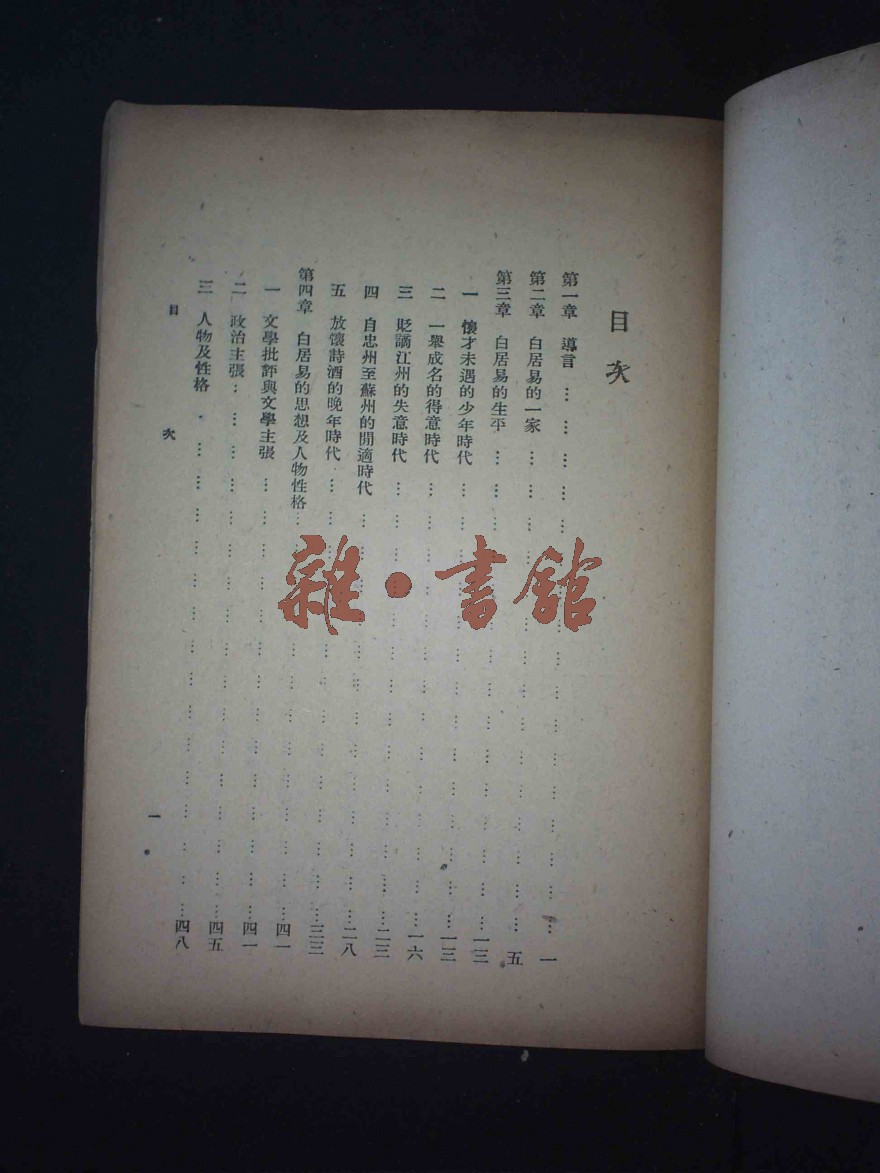 目次
第一章 導言 …… 一
第二章 白居易的一家 …… 五
第三章 白居易的生平 …… 一三
一 懷才未遇的少年時代 …… 一三
二 一舉成名的得意時代 …… 一六
三 貶謫江州的失意時代 …… 二三
四 自忠州至蘇州的閒適時代 …… 二八
五 放懷詩酒的晚年時代 …… 三三
第四章 白居易的思想及人物性格 …… 四一
一 文學批評與文學主張 …… 四一
二 政治主張 …… 四五
三 人物及性格 …… 四八
目次 一
雜·書館